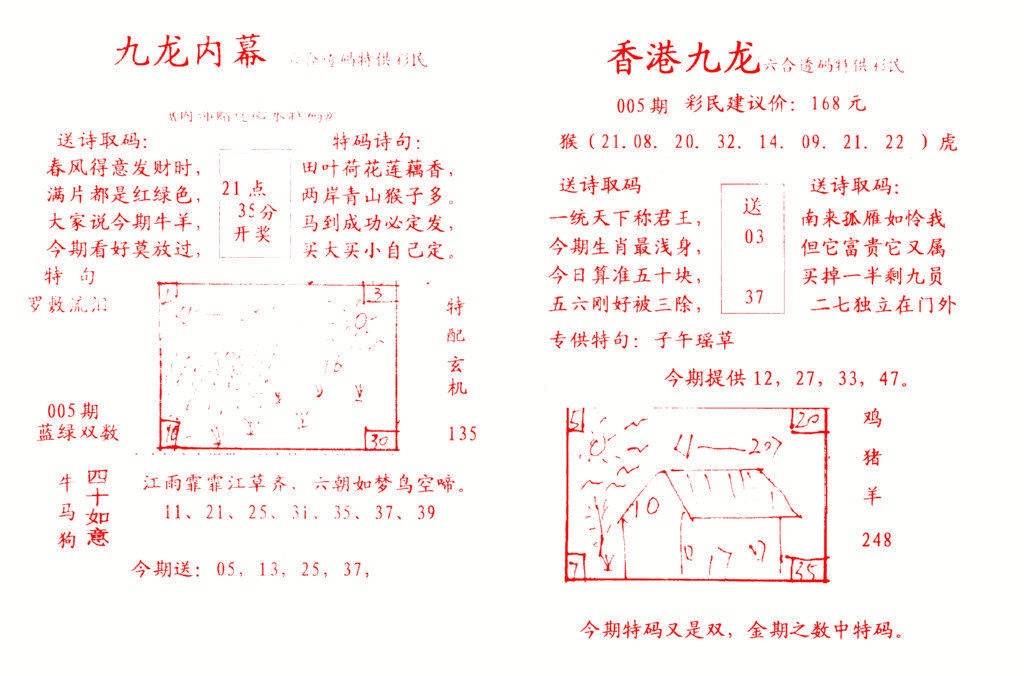 九龙内幕
透码特供彩民
送诗取码：
春风得意发财时，
满片都是红绿色，
大家说今期牛羊，
今期看好莫放过，
21 点
35分
开奖
特码诗句：
田叶荷花莲藕香，
两岸青山猴子多。
马到成功必定发，
买大买小自己定。
特 句
罗敷
1
3
30
特
配
玄
机
135
005期
蓝绿双数
牛
马
狗
四十如意
江雨霏霏江草齐，六朝如梦鸟空啼。
11、21、25、31、35、37、39
今期送：05，13，25，37，
香港九龙
六合透码特供彩民
005期 彩民建议价：168元
猴（21.08. 20. 32. 14. 09. 21. 22 ）虎
送诗取码
一统天下称君王，
今期生肖最浅身，
今日算准五十块，
五六刚好被三除，
送
03
37
送诗取码：
南来孤雁如怜我
但它富贵它又属
买掉一半剩九员
二七独立在门外
专供特句：子午瑶草
今期提供12，27，33，47。
5
20
10
7
35
鸡
猪
羊
248
今期特码又是双，金期之数中特码。